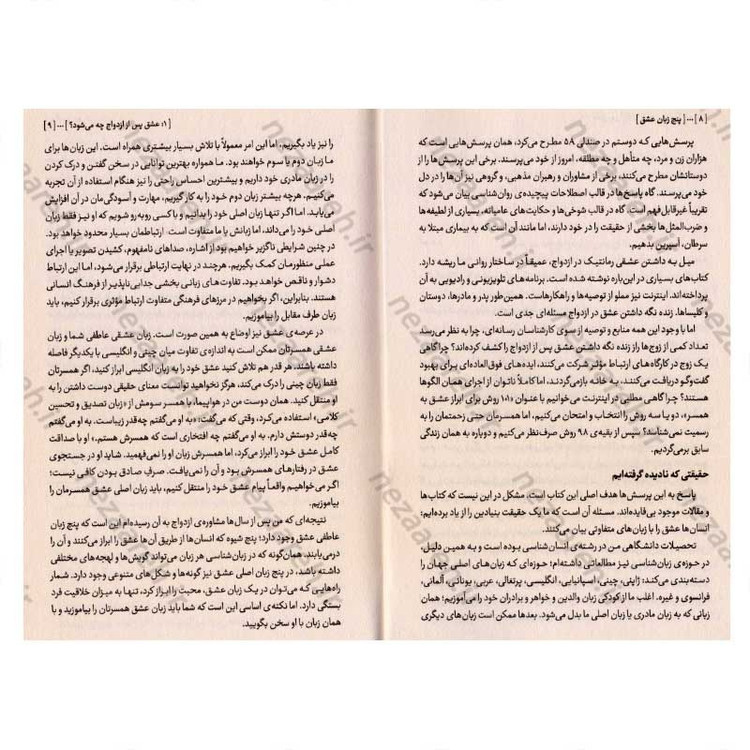 [ ۸ ] ... [ پنج زبان عشق ]
پرسش‌هایی که دوستم در صندلی ۵A مطرح می‌کرد، همان پرسش‌هایی است که
هزاران زن و مرد، چه متأهل و چه مطلقه، امروز از خود می‌پرسند. برخی این پرسش‌ها را از
دوستانشان مطرح می‌کنند، برخی از مشاوران و رهبران مذهبی، و گروهی نیز آن‌ها را در دل
خود می‌پرسند. گاه پاسخ‌ها در قالب اصطلاحات پیچیده‌ی روان‌شناسی بیان می‌شود که
تقریباً غیرقابل‌فهم است. گاه در قالب شوخی‌ها و حکایت‌های عامیانه. بسیاری از لطیفه‌ها
و ضرب‌المثل‌ها بخشی از حقیقت را در خود دارند، اما مانند آن است که به بیماری مبتلا به
سرطان، آسپرین بدهیم.
میل به داشتن عشقی رمانتیک در ازدواج، عمیقاً در ساختار روانی ما ریشه دارد.
کتاب‌های بسیاری در این‌باره نوشته شده است. برنامه‌های تلویزیونی و رادیویی به آن
پرداخته‌اند. اینترنت نیز مملو از توصیه‌ها و راهکارهاست. همین‌طور پدر و مادرها، دوستان
و کلیساها. زنده نگه داشتن عشق در ازدواج مسئله‌ای جدی است.
اما با وجود این همه منابع و توصیه از سوی کارشناسان رسانه‌ای، چرا به نظر می‌رسد
تعداد کمی از زوج‌ها راز زنده نگه داشتن عشق پس از ازدواج را کشف کرده‌اند؟ چرا گاهی
یک زوج در کارگاه‌های ارتباط مؤثر شرکت می‌کنند، ایده‌های فوق‌العاده‌ای برای بهبود
گفت‌وگو دریافت می‌کنند، به خانه بازمی‌گردند، اما کاملاً ناتوان از اجرای همان الگوها
هستند؟ چرا گاهی مطلبی در اینترنت می‌خوانیم با عنوان «۱۰۱ روش برای ابراز عشق به
همسر»، دو یا سه روش را انتخاب و امتحان می‌کنیم، اما همسرمان حتی زحمتمان را به
رسمیت نمی‌شناسد؟ سپس از بقیه‌ی ۹۸ روش صرف‌نظر می‌کنیم و دوباره به همان زندگی
سابق برمی‌گردیم.
حقیقتی که نادیده گرفته‌ایم
پاسخ به این پرسش‌ها هدف اصلی این کتاب است. مشکل در این نیست که کتاب‌ها
و مقالات موجود بی‌فایده‌اند. مسئله آن است که ما یک حقیقت بنیادین را از یاد برده‌ایم؛
انسان‌ها عشق را با زبان‌های متفاوتی بیان می‌کنند.
تحصیلات دانشگاهی من در رشته‌ی انسان‌شناسی بوده است و به همین دلیل،
در حوزه‌ی زبان‌شناسی نیز مطالعاتی داشته‌ام؛ حوزه‌ای که زبان‌های اصلی جهان را
دسته‌بندی می‌کند؛ ژاپنی، چینی، اسپانیایی، انگلیسی، پرتغالی، عربی، یونانی، آلمانی،
فرانسوی و غیره. اغلب ما از کودکی زبان والدین و خواهر و برادران خود را می‌آموزیم؛ همان
زبانی که به زبان مادری یا زبان اصلی ما بدل می‌شود. بعدها ممکن است زبان‌های دیگری
[ ۱: عشق پس از ازدواج چه می‌شود؟ ] ... [ ۹ ]
را نیز یاد بگیریم، اما این امر معمولاً با تلاش بسیار بیشتری همراه است. این زبان‌ها برای
ما زبان دوم یا سوم خواهند بود. ما همواره بهترین توانایی در سخن گفتن و درک کردن
را در زبان مادری خود داریم و بیشترین احساس راحتی را نیز هنگام استفاده از آن تجربه
می‌کنیم. هرچه بیشتر زبان دوم خود را به کار گیریم، مهارت و آسودگی‌مان در آن افزایش
می‌یابد. اما اگر تنها زبان اصلی خود را بدانیم و با کسی روبه‌رو شویم که او نیز فقط زبان
اصلی خود را می‌داند، اما زبانش با ما متفاوت است، ارتباطمان بسیار محدود خواهد بود.
در چنین شرایطی ناگزیر خواهیم بود از اشاره، صداهای نامفهوم، کشیدن تصویر یا اجرای
عملی منظورمان کمک بگیریم. هرچند در نهایت ارتباطی برقرار می‌شود، اما این ارتباط
دشوار و ناقص خواهد بود. تفاوت‌های زبانی بخشی جدایی‌ناپذیر از فرهنگ انسانی
هستند. بنابراین، اگر بخواهیم در مرزهای فرهنگی متفاوت ارتباط مؤثری برقرار کنیم، باید
زبان طرف مقابل را بیاموزیم.
در عرصه‌ی عشق نیز اوضاع به همین صورت است. زبان عشقی عاطفی شما و زبان
عشقی همسرتان ممکن است به اندازه‌ی تفاوت میان چینی و انگلیسی با یکدیگر فاصله
داشته باشند. هر قدر هم تلاش کنید عشق خود را به زبان انگلیسی ابراز کنید، اگر همسرتان
فقط زبان چینی را درک می‌کند، هرگز نخواهید توانست معنای حقیقی دوست داشتن را به
او منتقل کنید. همان دوست من در هواپیما، با همسر سومش از «زبان تصدیق و تحسین
کلامی» استفاده می‌کرد، وقتی که می‌گفت: «به او می‌گفتم چه‌قدر زیباست. به او می‌گفتم
چه‌قدر دوستش دارم. به او می‌گفتم چه افتخاری است که همسرش هستم.» او با صداقت
کامل عشق خود را ابراز می‌کرد، اما همسرش زبان او را نمی‌فهمید. شاید او در جستجوی
عشق در رفتارهای همسرش بود و آن را نمی‌یافت. صرفِ صادق بودن کافی نیست؛
اگر می‌خواهیم واقعاً پیام عشق خود را منتقل کنیم، باید زبان اصلی عشق همسرمان را
بیاموزیم.
نتیجه‌ای که من پس از سال‌ها مشاوره‌ی ازدواج به آن رسیده‌ام این است که پنج زبان
عاطفی عشق وجود دارد؛ پنج شیوه که انسان‌ها از طریق آن‌ها عشق را ابراز می‌کنند و آن را
درمی‌یابند. همان‌گونه که در زبان‌شناسی هر زبان می‌تواند گویش‌ها و لهجه‌های مختلفی
داشته باشد، در پنج زبان اصلی عشق نیز گونه‌ها و شکل‌های متنوعی وجود دارد. شمار
راه‌هایی که می‌توان در یک زبان عشق، محبت را ابراز کرد، تنها به میزان خلاقیت فرد
بستگی دارد. اما نکته‌ی اساسی این است که شما باید زبان عشق همسرتان را بیاموزید و با
همان زبان با او سخن بگویید.